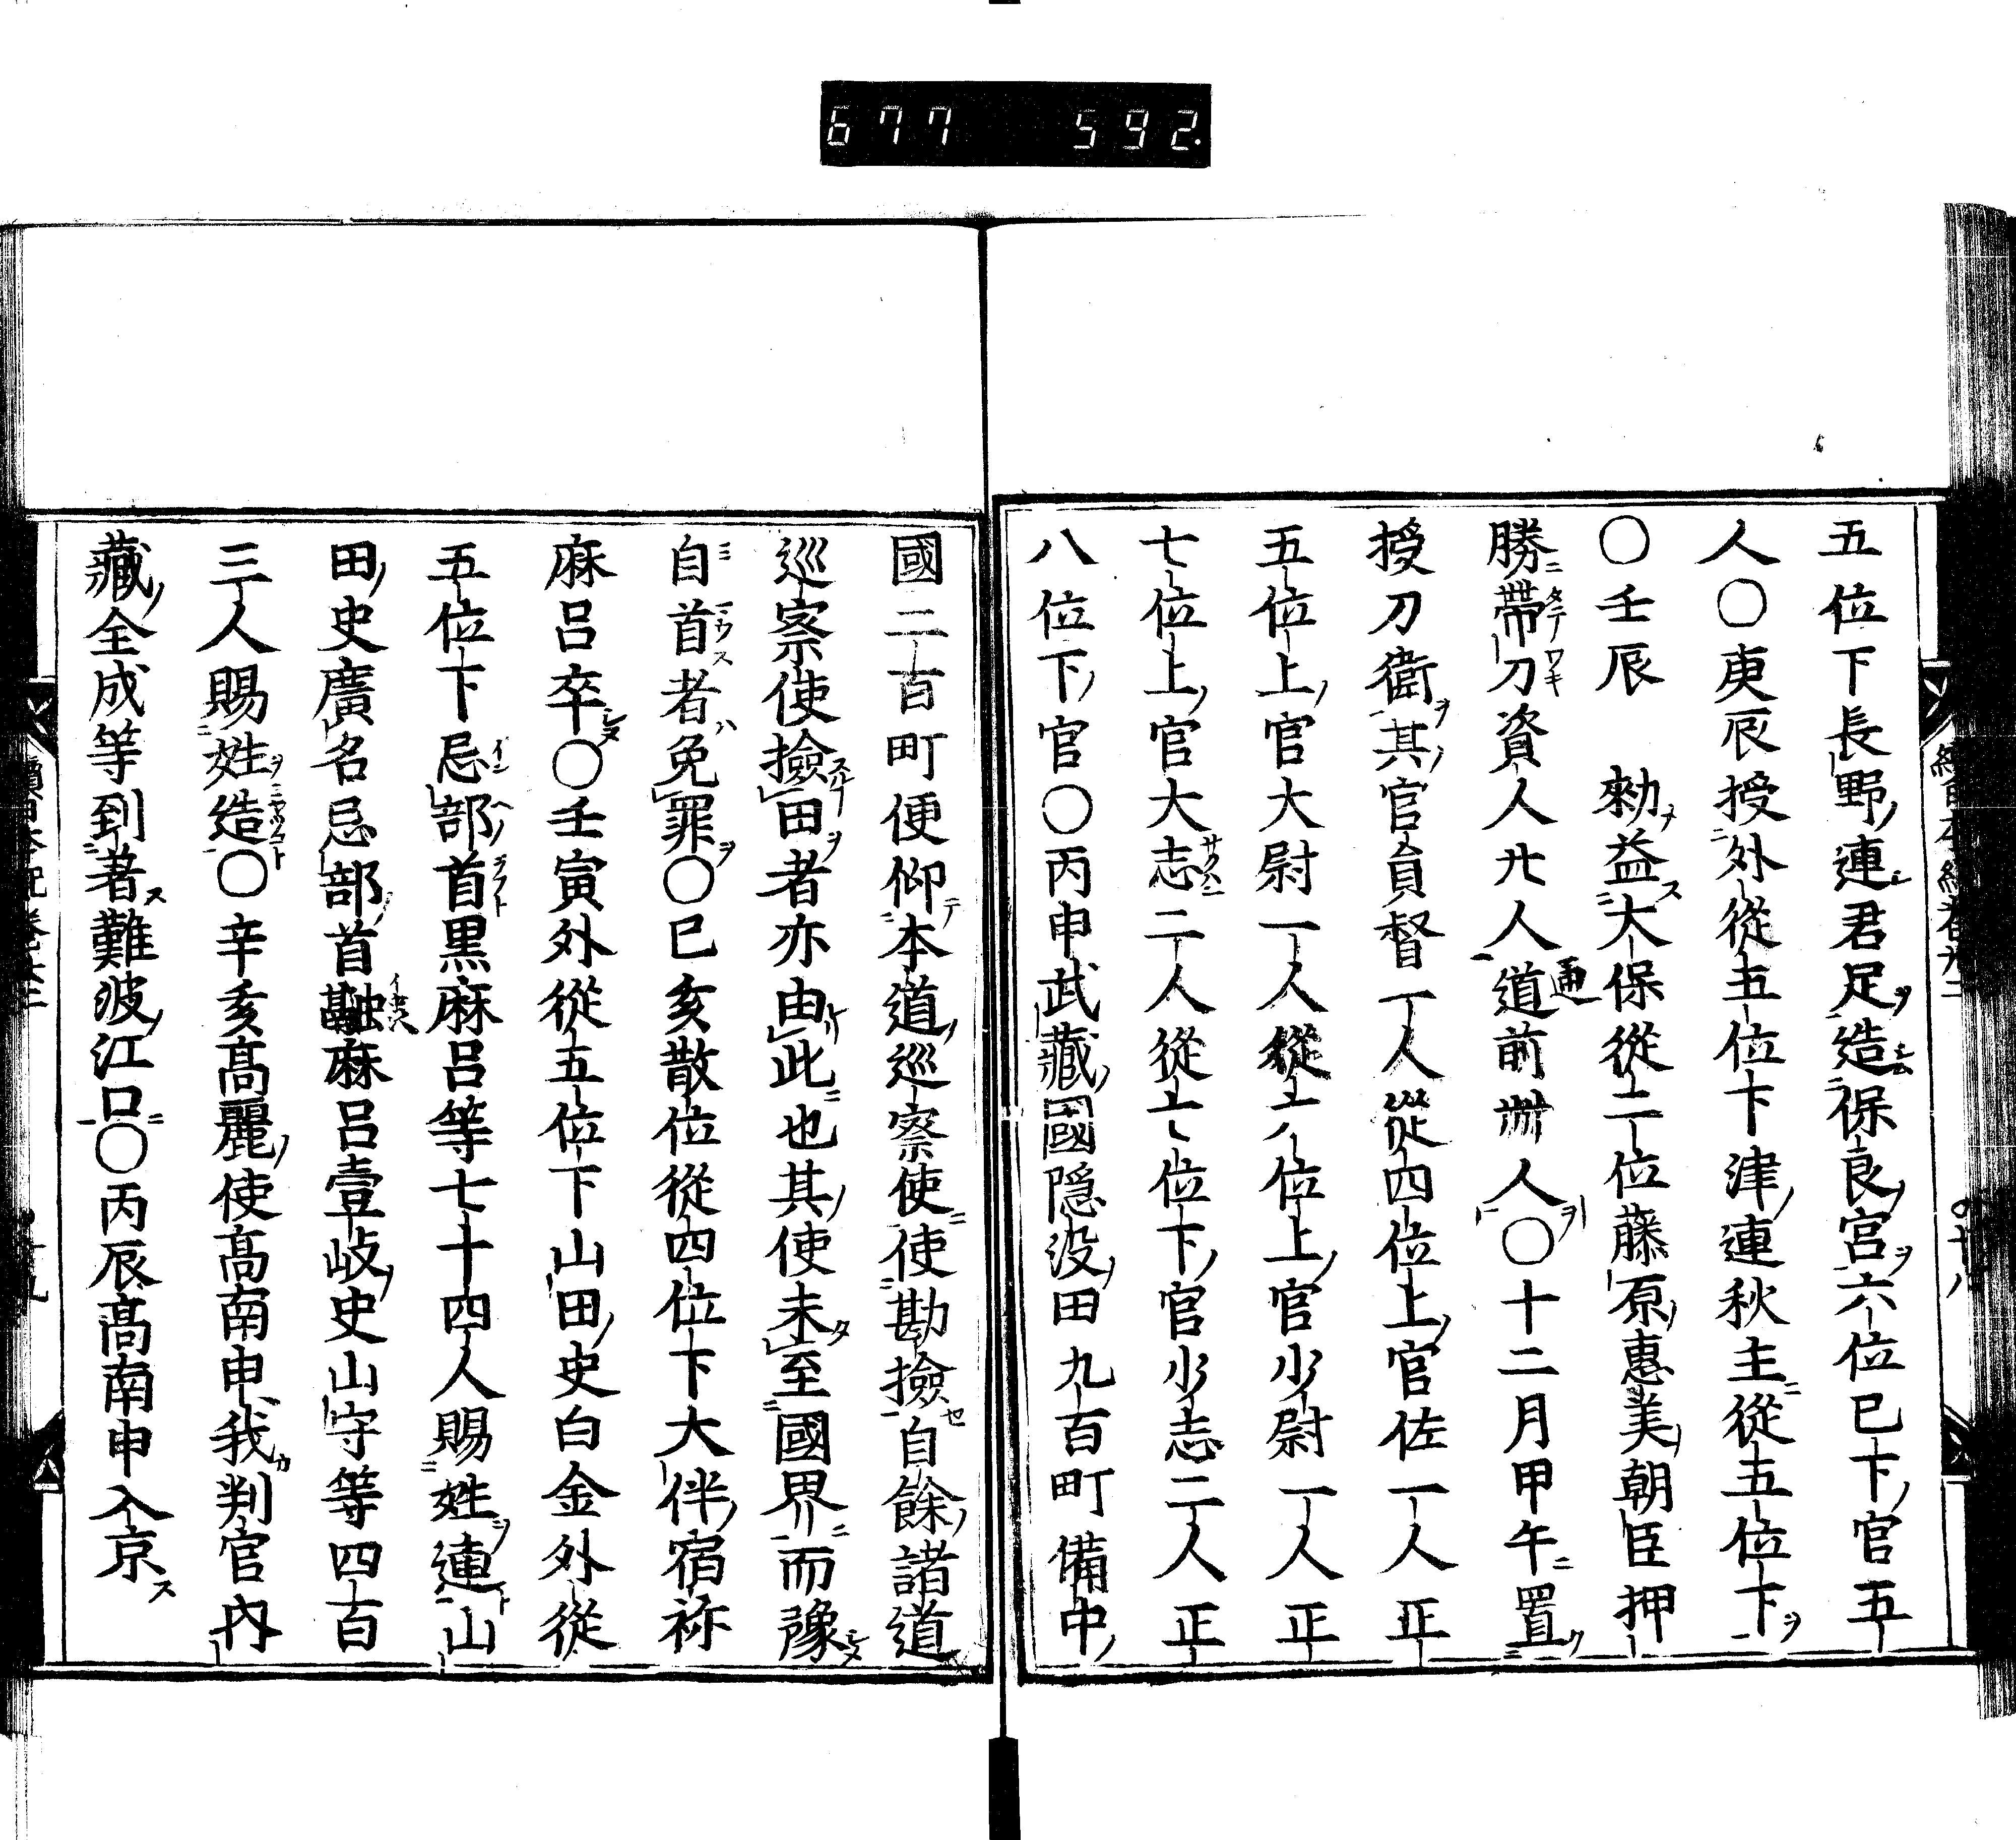 677 592.
五位下長野連君足造保良宮六位已下官五
人○庚辰授外從五位下津連秋主從五位下
○壬辰 勅益大保從二位藤原惠美朝臣押
勝帶刀資人廿人道前卌人○十二月甲午置
通
授刀衛其官員督一人從四位上官佐一人正
五位上官大尉一人從六位上官少尉一人正
七位上官大志二人從七位下官少志二人正
八位下官○丙申武藏國隱没田九百町備中
國二百町便仰本道巡察使使勘撿自餘諸道
巡察使撿田者亦由此也其使未至國界而豫
自首者免罪○已亥散位從四位下大伴宿祢
麻呂卒○壬寅外從五位下山田史白金外從
五位下忌部首黒麻呂等七十四人賜姓連山
田史廣名忌部首融麻呂壹岐史山守等四百
三人賜姓造○辛亥髙麗使髙南申我判官内
藏全成等到著難波江口○丙辰髙南申入京